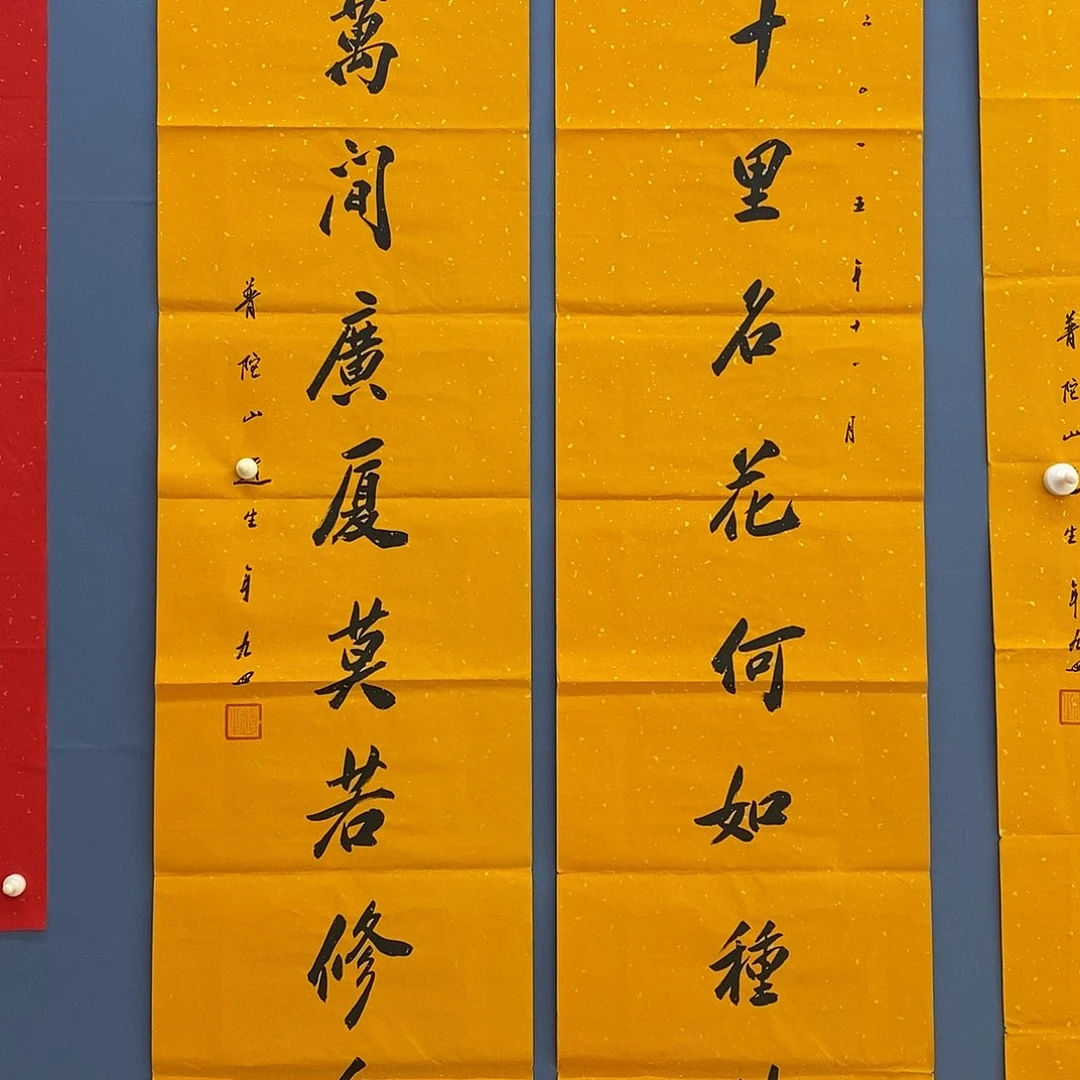 二〇一五年十一月
十里名花何如種
萬间廣厦莫若修
普陀山道生年九四
普陀山
生年九四